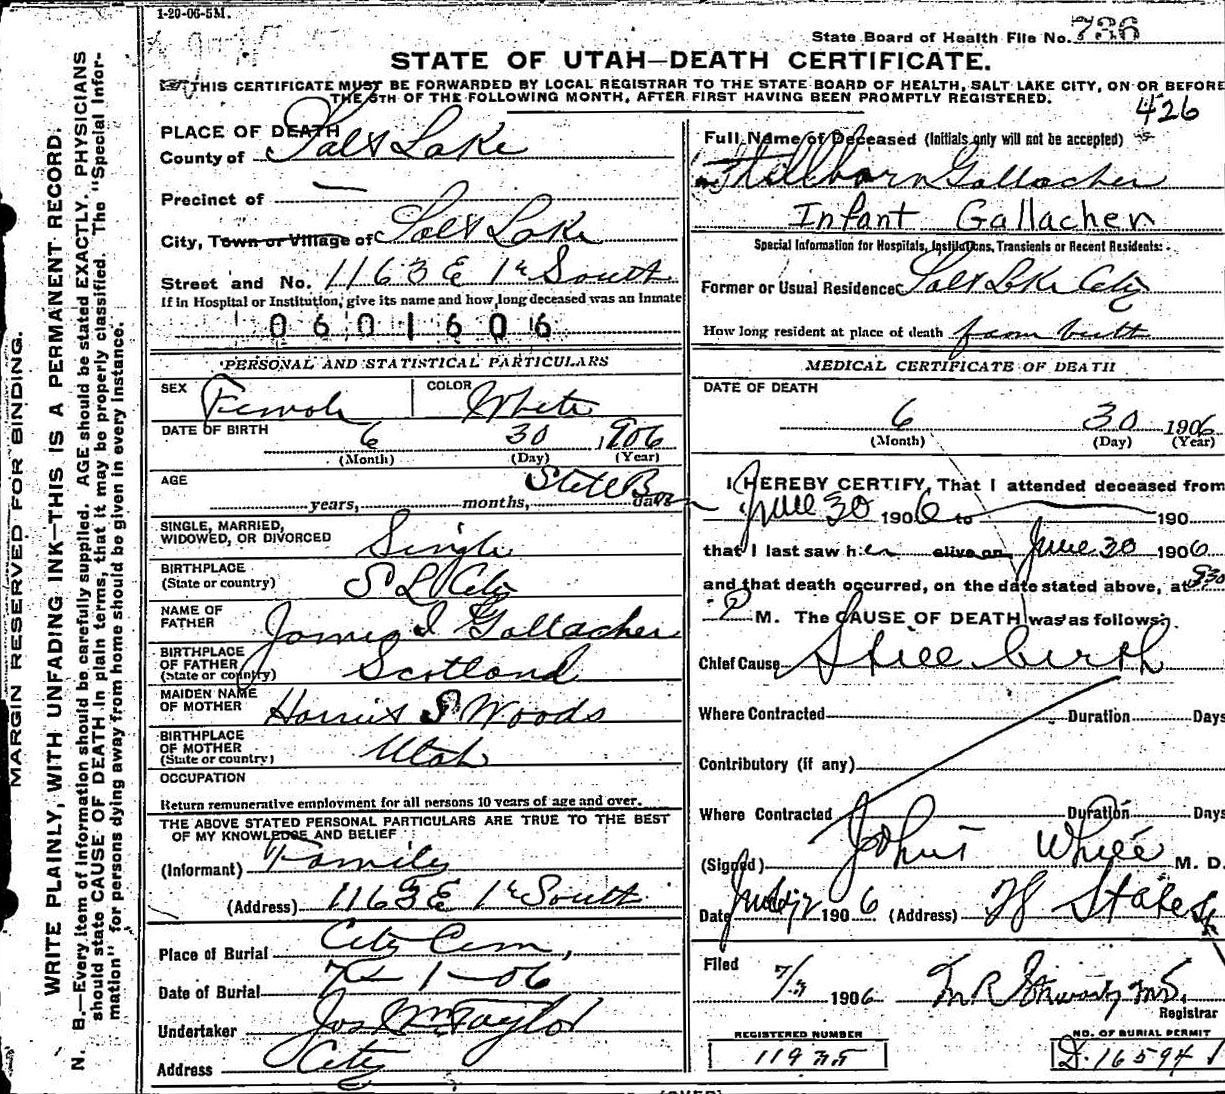 1-20-06-5M.
State Board of Health File No. 736
STATE OF UTAH—DEATH CERTIFICATE.
THIS CERTIFICATE MUST BE FORWARDED BY LOCAL REGISTRAR TO THE STATE BOARD OF HEALTH, SALT LAKE CITY, ON OR BEFORE
THE 5TH OF THE FOLLOWING MONTH, AFTER FIRST HAVING BEEN PROMPTLY REGISTERED.
426
MARGIN RESERVED FOR BINDING.
WRITE PLAINLY, WITH UNFADING INK—THIS IS A PERMANENT RECORD.
N. B.—Every item of information should be carefully supplied. AGE should be stated EXACTLY. PHYSICIANS
should state CAUSE OF DEATH in plain terms, that it may be properly classified. The "Special Infor-
mation" for persons dying away from home should be given in every instance.
PLACE OF DEATH
County of Salt Lake
Precinct of —
City, Town or Village of Salt Lake
Street and No. 1163 E 1st South
If in Hospital or Institution, give its name and how long deceased was an Inmate
0601606
PERSONAL AND STATISTICAL PARTICULARS
SEX Female COLOR White
DATE OF BIRTH 6 30 1906
(Month) (Day) (Year)
AGE Still Born
years, months, days
SINGLE, MARRIED,
WIDOWED, OR DIVORCED Single
BIRTHPLACE
(State or country) S L City
NAME OF
FATHER James I Gallacher
BIRTHPLACE
OF FATHER
(State or country) Scotland
MAIDEN NAME
OF MOTHER S Woods
BIRTHPLACE
OF MOTHER
(State or country) Utah
OCCUPATION
Return remunerative employment for all persons 10 years of age and over.
THE ABOVE STATED PERSONAL PARTICULARS ARE TRUE TO THE BEST
OF MY KNOWLEDGE AND BELIEF
(Informant) Family
(Address) 1163 E 1st South
Place of Burial City Cem,
Date of Burial 7 — 1 — 06
Undertaker Jos Wm Taylor
Address City
Full Name of Deceased (Initials only will not be accepted)
Stillborn Gallacher
Infant Gallacher
Special Information for Hospitals, Institutions, Transients or Recent Residents:
Former or Usual Residence Salt Lake City
How long resident at place of death from birth
MEDICAL CERTIFICATE OF DEATH
DATE OF DEATH
6 30 1906
(Month) (Day) (Year)
I HEREBY CERTIFY, That I attended deceased from
June 30 1906 to 190
that I last saw her alive on June 30 1906
and that death occurred, on the date stated above, at 930
P M. The CAUSE OF DEATH was as follows:
Chief Cause Still birth
Where Contracted Duration Days
Contributory (if any)
Where Contracted Duration Days
(Signed) White M. D.
Date 1906 (Address) State St
Filed 7/3 1906 M R
Registrar
REGISTERED NUMBER
11935
NO. OF BURIAL PERMIT
D. 16594
(OVER)